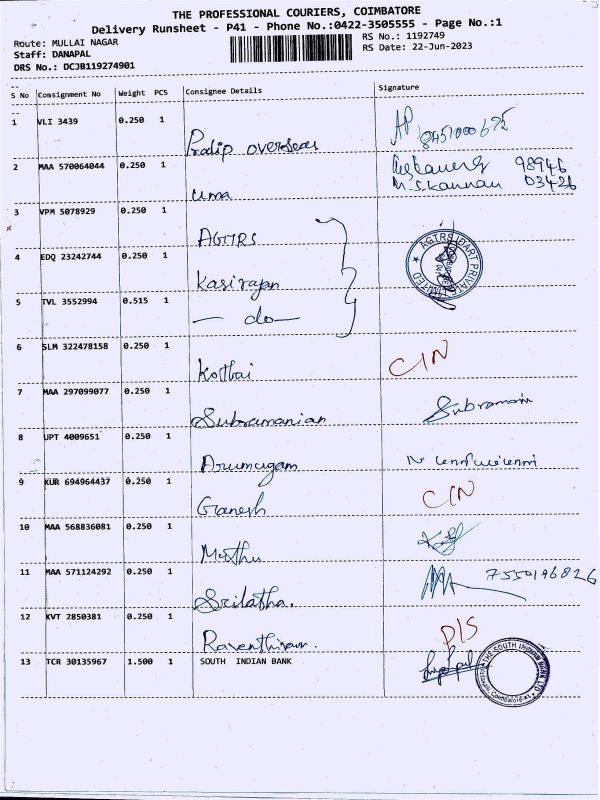 THE PROFESSIONAL COURIERS, COIMBATORE
Delivery Runsheet - P41 - Phone No.:0422-3505555 - Page No.:1
Route: MULLAI NAGAR
RS No.: 1192749
Staff: DANAPAL
RS Date: 22-Jun-2023
DRS No.: DCJB119274901
S No Consignment No Weight PCS Consignee Details Signature
1 VLI 3439 0.250 1
Pradip overseas 8451000675
2 MAA 570064044 0.250 1 98946
Uma M.S.Kannan 03426
3 VPM 5078929 0.250 1
AGTRS
4 EDQ 23242744 0.250 1
Kasirajan
5 TVL 3552994 0.515 1
— do —
AGTRS DART PRIVATE LIMITED
6 SLM 322478158 0.250 1
Kothai CIN
7 MAA 297099077 0.250 1
Subramanian Subramani
8 UPT 4009651 0.250 1
Arumugam
9 KUR 694964437 0.250 1
Ganesh CIN
10 MAA 568836081 0.250 1
Muthu
11 MAA 571124292 0.250 1 7550196826
Srilatha.
12 KVT 2850381 0.250 1 D/S
Raventhiran.
13 TCR 30135967 1.500 1 SOUTH INDIAN BANK
THE SOUTH INDIAN BANK LTD